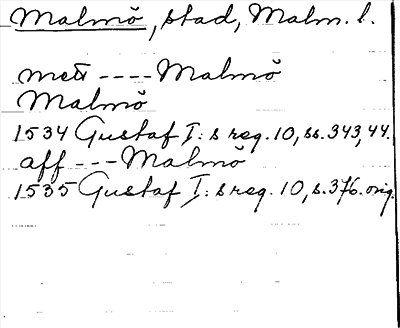 Malmö, stad, Malm. l.
mett ---- Malmö
Malmö
1534 Gustaf I:s reg. 10, ss. 343, 44.
aff --- Malmö
1535 Gustaf I:s reg. 10, s. 376. orig.